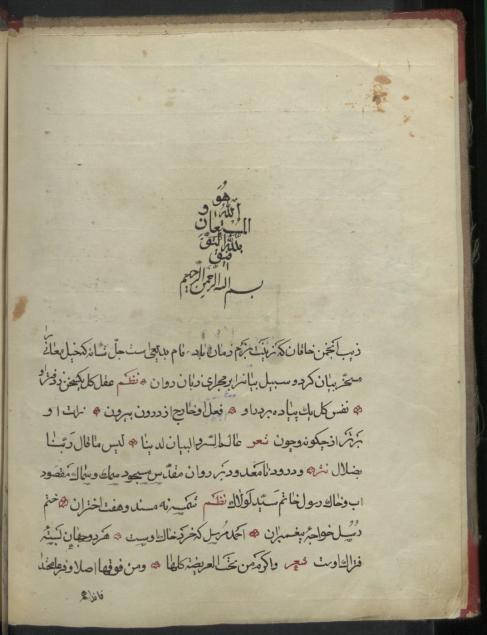 هو
الله
و
المستعان
بالله التوفیق
بسم الله الرحمن الرحیم
زیب انجمن خاقان که زینت بزم زمان باید نام بدیعی است جل شانه که خیل معانی
مسخر بیان کرد و سبیل بیانرا مجرای زبان روان نظم عقل کل یک سخن ز دفتر او
نفس کل یک پیاده بر در او فعل او خارج از درون بیرون ذات او
برتر از چگونه و چون شعر لیس ما قال ربنا
بضلال نثر و درود نامعدود بر روان مقدس مسجود سمك و سماك مقصود
آب و خاك رسول خاتم سید لولاك نظم شمسه نه مسند و هفت اختران ختم
رسل خواجه پیغمبران احمد مرسل که خرد خاك اوست هر دو جهان بسته
فتراك اوست شعر واکرم من تحت العریضة کلها ومن فوقها اصلا و فرعا